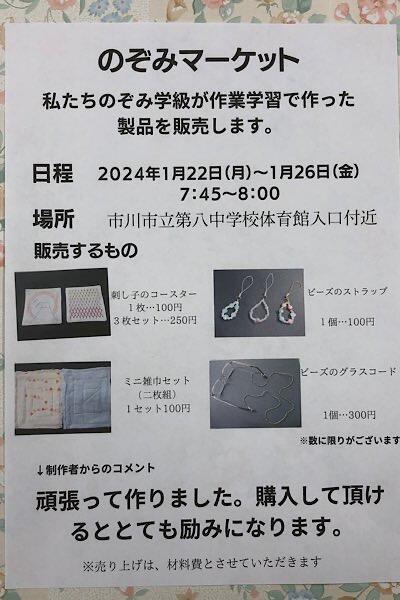 のぞみマーケット
私たちのぞみ学級が作業学習で作った
製品を販売します。
日程 2024年1月22日(月)～1月26日(金)
7:45～8:00
場所 市川市立第八中学校体育館入口付近
販売するもの
刺し子のコースター
1枚…100円
3枚セット…250円
ビーズのストラップ
1個…100円
ミニ雑巾セット
（二枚組）
1セット100円
ビーズのグラスコード
1個…300円
※数に限りがございます
↓制作者からのコメント
頑張って作りました。購入して頂け
るととても励みになります。
※売り上げは、材料費とさせていただきます